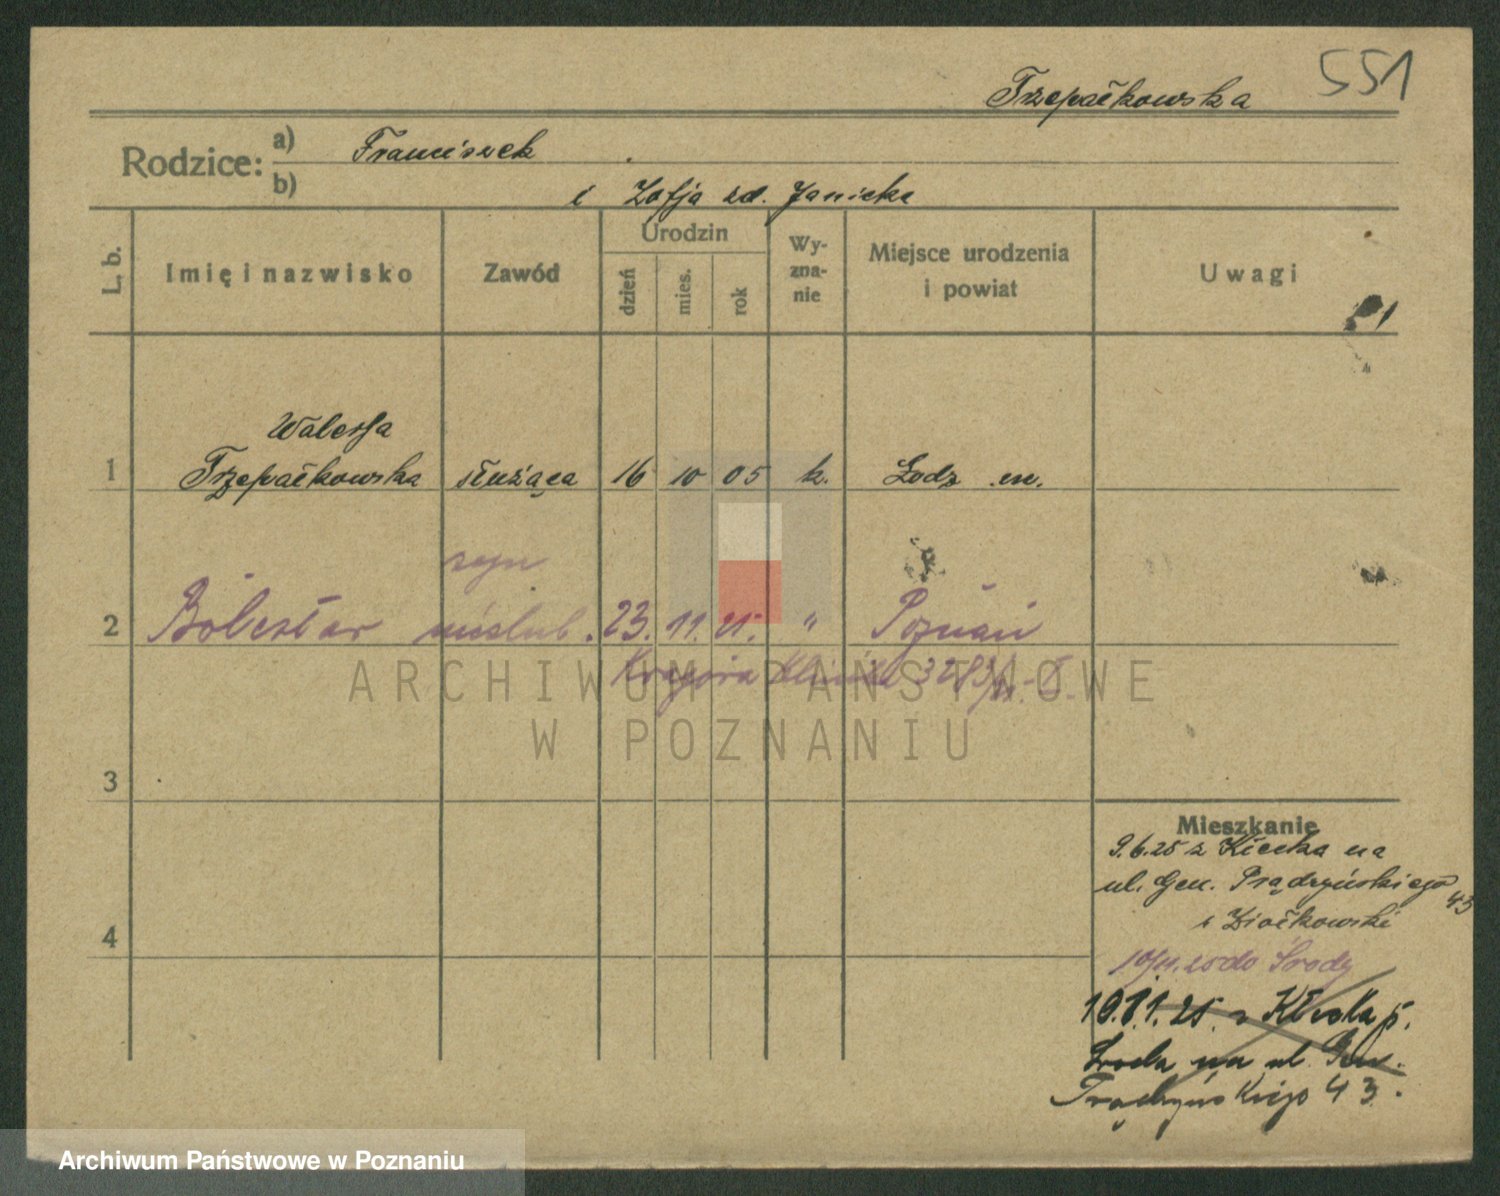 551
Trzepałkowska
Rodzice: a) Franciszek
b) i Zofja zd. Janicka
L. b.
Imię i nazwisko
Zawód
Urodzin
dzień
mies.
rok
Wy-
zna-
nie
Miejsce urodzenia
i powiat
Uwagi
Walerja
1 Trzepałkowska służąca 16 10 05 k. Łodz m.
syn
2 Bolesław nieślub. 23. 11. 25. " Poznań
Klinika
3
4
Mieszkanie
9.6.25 z Kłecka na
ul. Gen. Prądzyńskiego 43
Ziołkowski
10/11.25 do Środy
19.11.25. z Kłecka p.
Środa na ul. Gen.
Prądzyńskiego 43.
ARCHIWUM PAŃSTWOWE
W POZNANIU
Archiwum Państwowe w Poznaniu